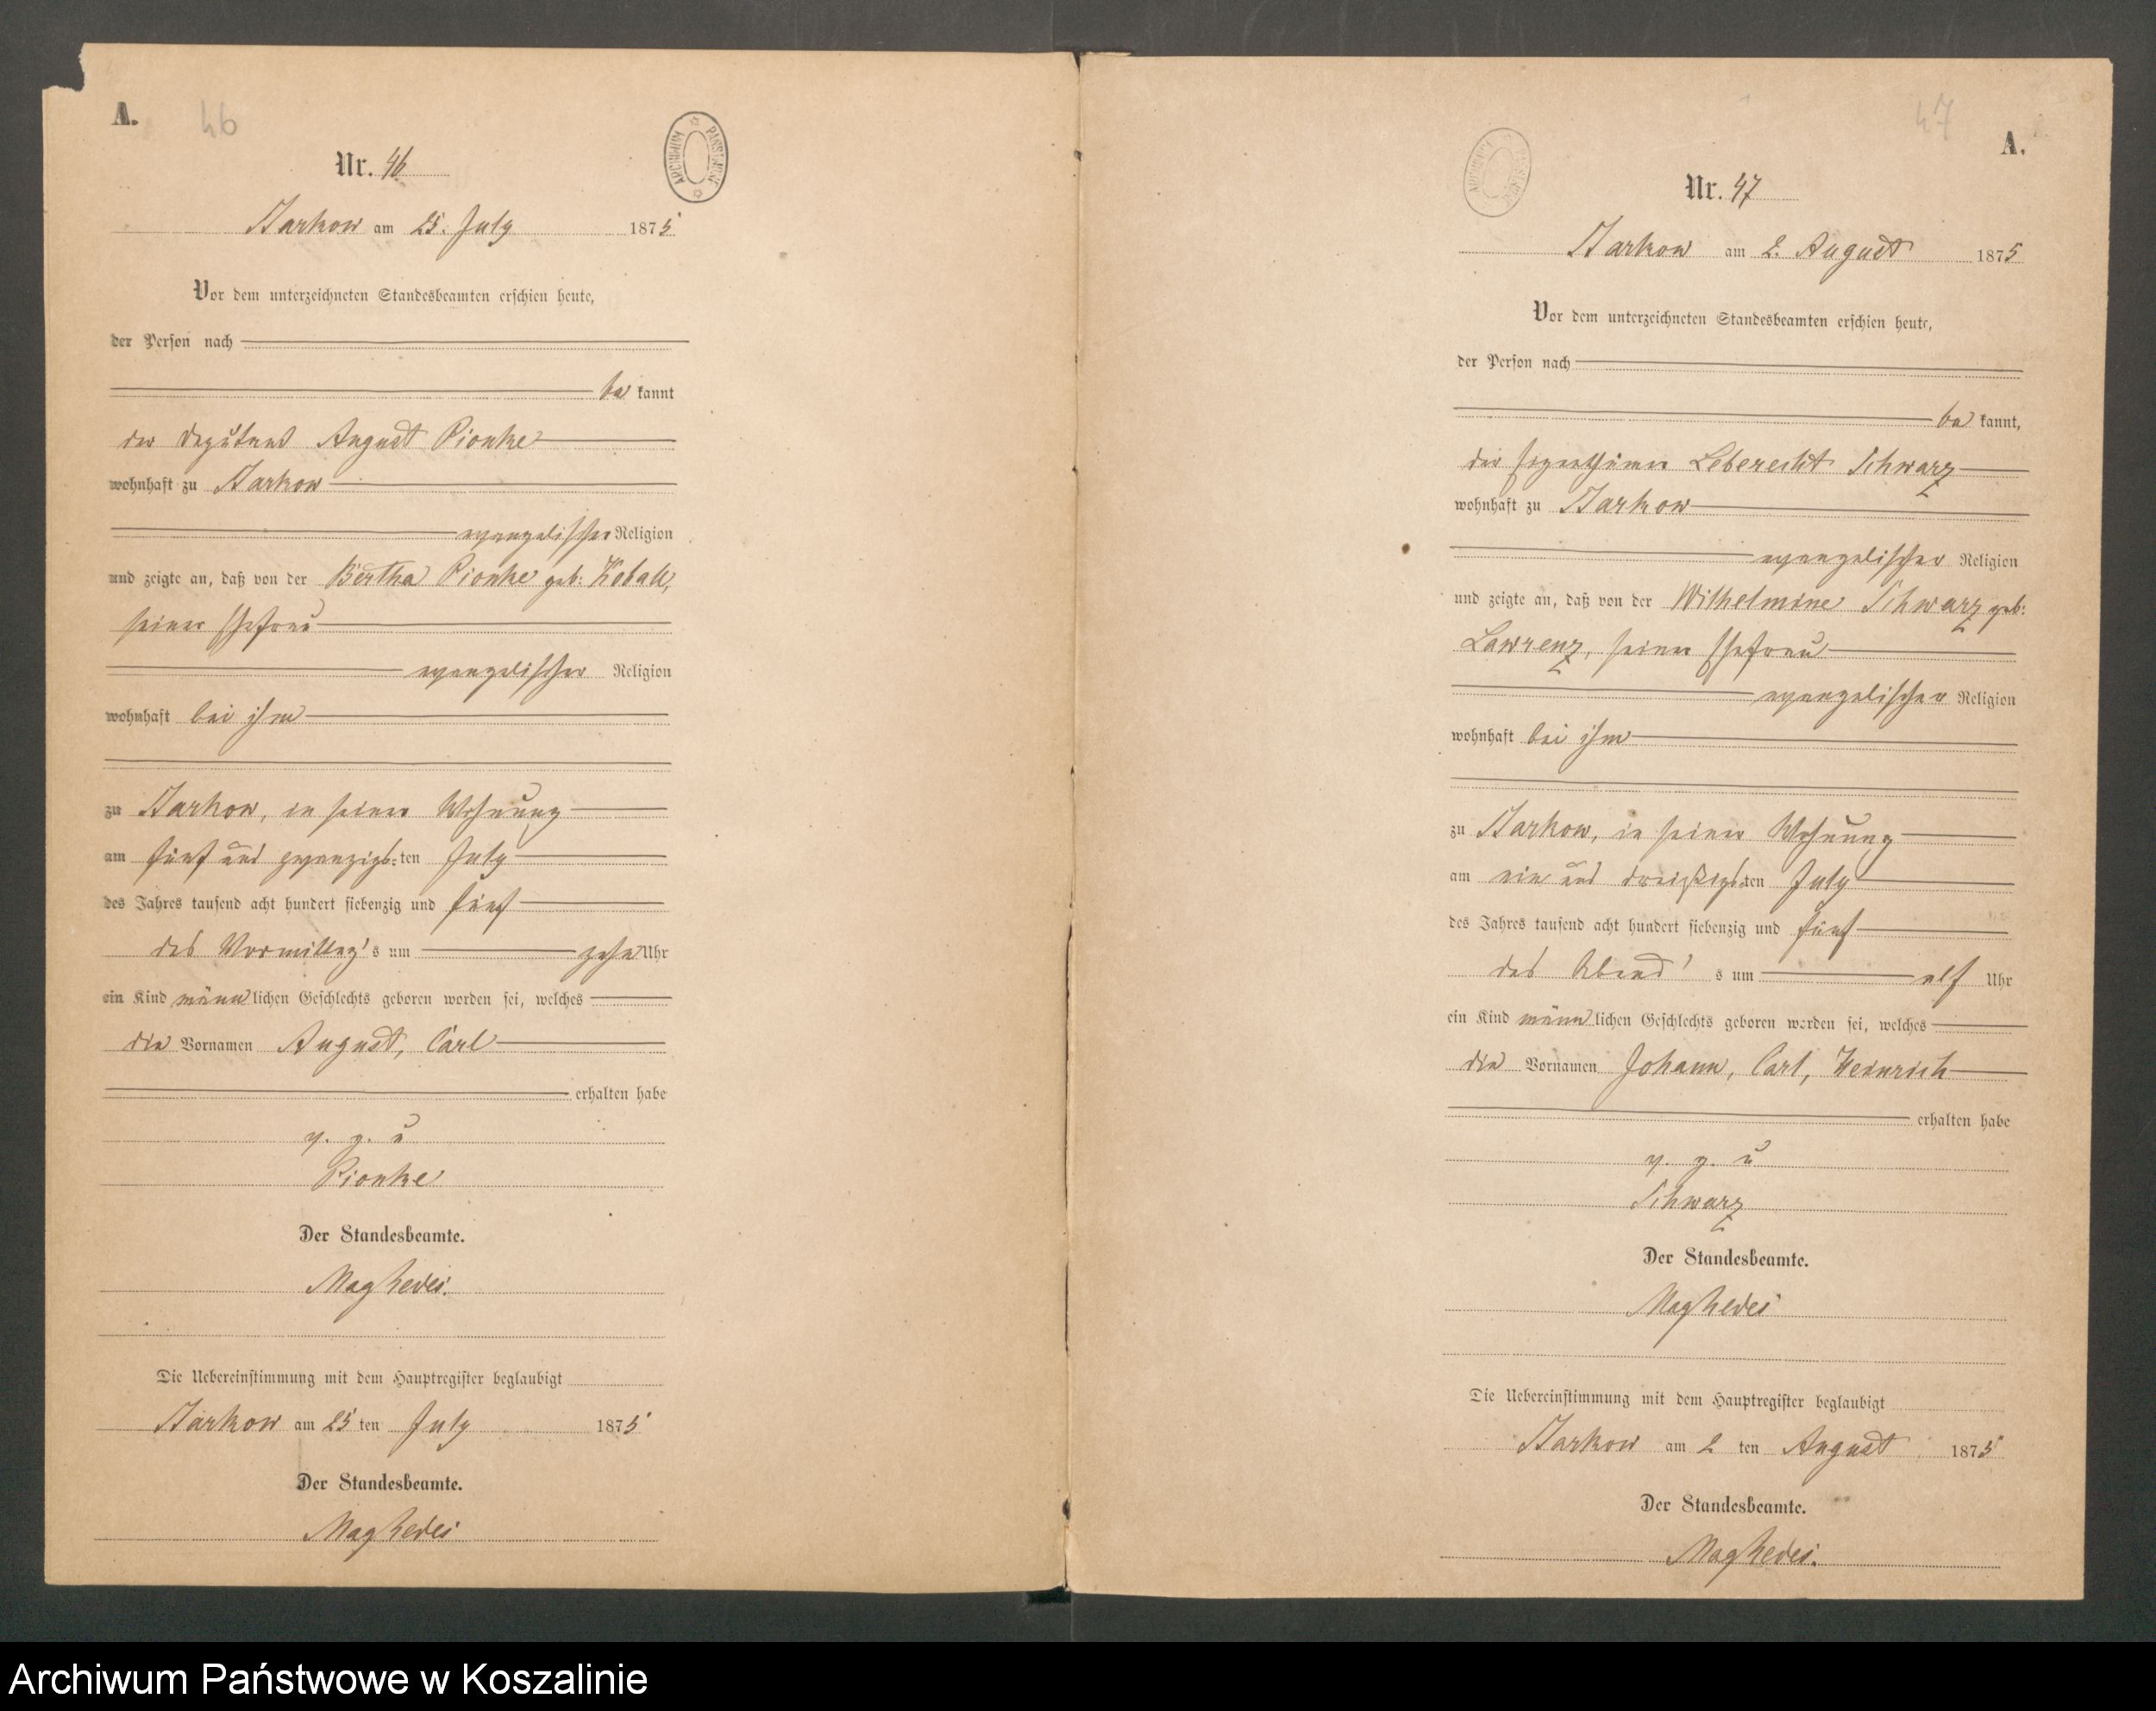 A. 46
Nr. 46
ARCHIWUM PAŃSTWOWE
Starkow am 25. July 1875
Vor dem unterzeichneten Standesbeamten erschien heute,
der Person nach
be kannt
der Deputant August Pionke
wohnhaft zu Starkow
evangelischer Religion
und zeigte an, daß von der Bertha Pionke geb: Koball,
seiner Ehefrau
evangelischer Religion
wohnhaft bei ihm
zu Starkow, in seiner Wohnung
am fünf und zwanzigs-ten July
des Jahres tausend acht hundert siebenzig und fünf
des Vormittag's um zehn Uhr
ein Kind männlichen Geschlechts geboren worden sei, welches
die Vornamen August, Carl
erhalten habe
v. g. u
Pionke
Der Standesbeamte.
Die Uebereinstimmung mit dem Hauptregister beglaubigt
Starkow am 25 ten July 1875
Der Standesbeamte.
47
A.
Nr. 47
Starkow am 2. August 1875
Vor dem unterzeichneten Standesbeamten erschien heute,
der Person nach
be kannt,
der Eigenthümer Leberecht Schwarz
wohnhaft zu Starkow
evangelischer Religion
und zeigte an, daß von der Wilhelmine Schwarz geb:
Lawrenz, seiner Ehefrau
evangelischer Religion
wohnhaft bei ihm
zu Starkow, in seiner Wohnung
am ein und dreißigs-ten July
des Jahres tausend acht hundert siebenzig und fünf
des Abend's um elf Uhr
ein Kind männlichen Geschlechts geboren worden sei, welches
die Vornamen Johann, Carl, Heinrich
erhalten habe
v. g. u
Schwarz
Der Standesbeamte.
Die Uebereinstimmung mit dem Hauptregister beglaubigt
Starkow am 2 ten August 1875
Der Standesbeamte.
Archiwum Państwowe w Koszalinie